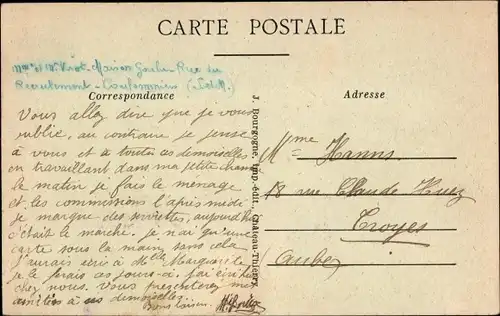 CARTE POSTALE
Mme et Mr Maison Rue du
Coulommiers (S et M)
Correspondance
Adresse
Vous allez dire que je vous
oublie, au contraire je pense
à vous et à toutes ces demoiselles
en travaillant dans ma petite chambre
le matin je fais le menage
et les commissions l'après midi
je marque des serviettes, aujourd'hui
c'était le marché. je n'ai qu'une
carte sous la main sans cela
j'aurais écrit à Melle Marguerite
je le ferais ces jours-ci. j'ai écrit
chez nous. Vous presenterez mes
amitiés à ces demoiselles
J. Bourgogne, imp.-édit., Château-Thierry
Mme Hanns
18 rue Claude Huez
Troyes
Aube